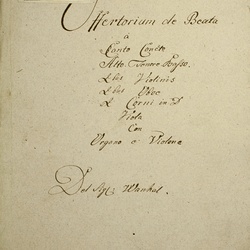 Offertorium de Beata
à
Canto Conc:to
Alto Tenore Basso.
2bus Violinis
2bus Oboe
2 Corni in D
Viola
Con
Organo e Violone
Del Sig: Wanhal.